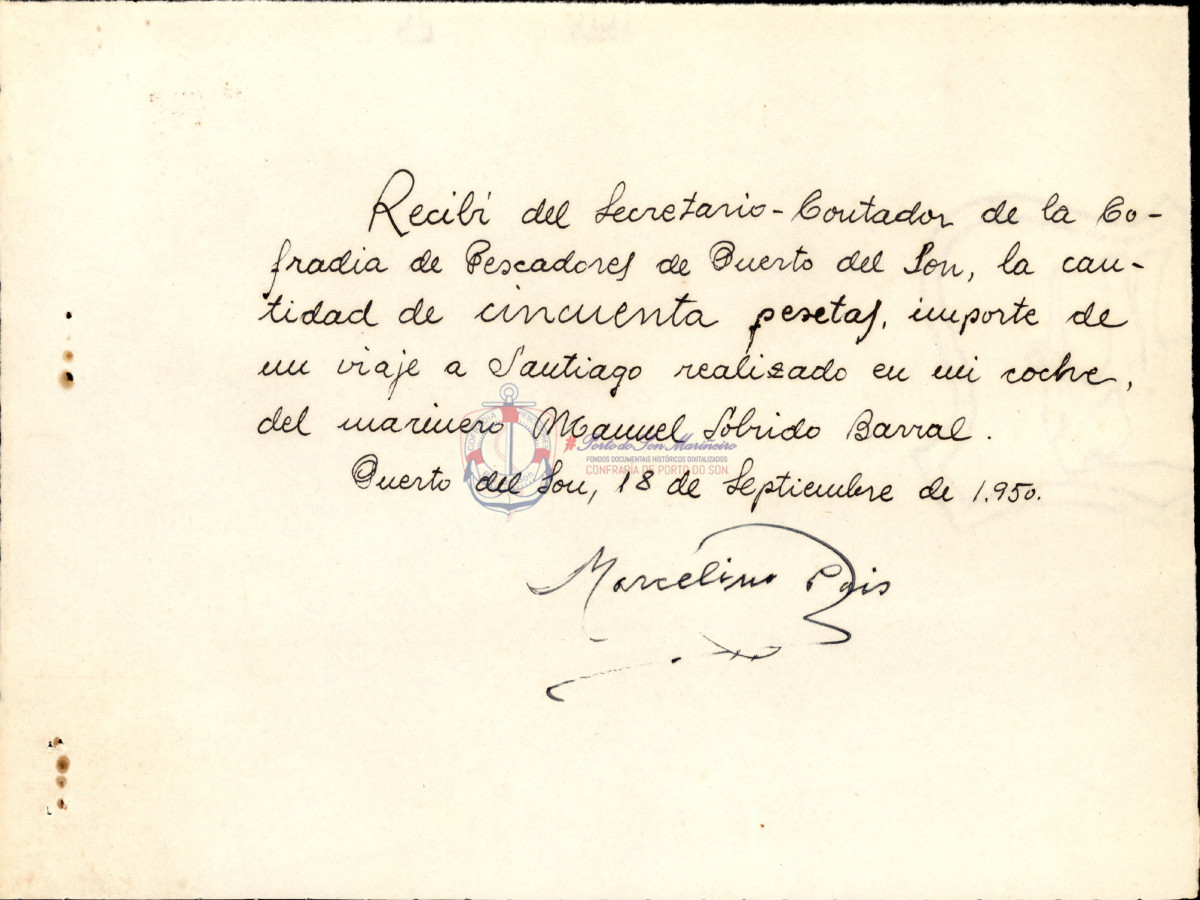 Recibí del Secretario-Contador de la Co-
fradia de Pescadores de Puerto del Son, la can-
tidad de cincuenta pesetas, importe de
un viaje a Santiago realizado en mi coche,
del marinero Manuel Sobrido Barral.
#Porto do Son Mariñeiro
FONDOS DOCUMENTAIS HISTÓRICOS DIXITALIZADOS
CONFRARÍA DE PORTO DO SON
Puerto del Son, 18 de Septiembre de 1.950.
Marcelino Pais